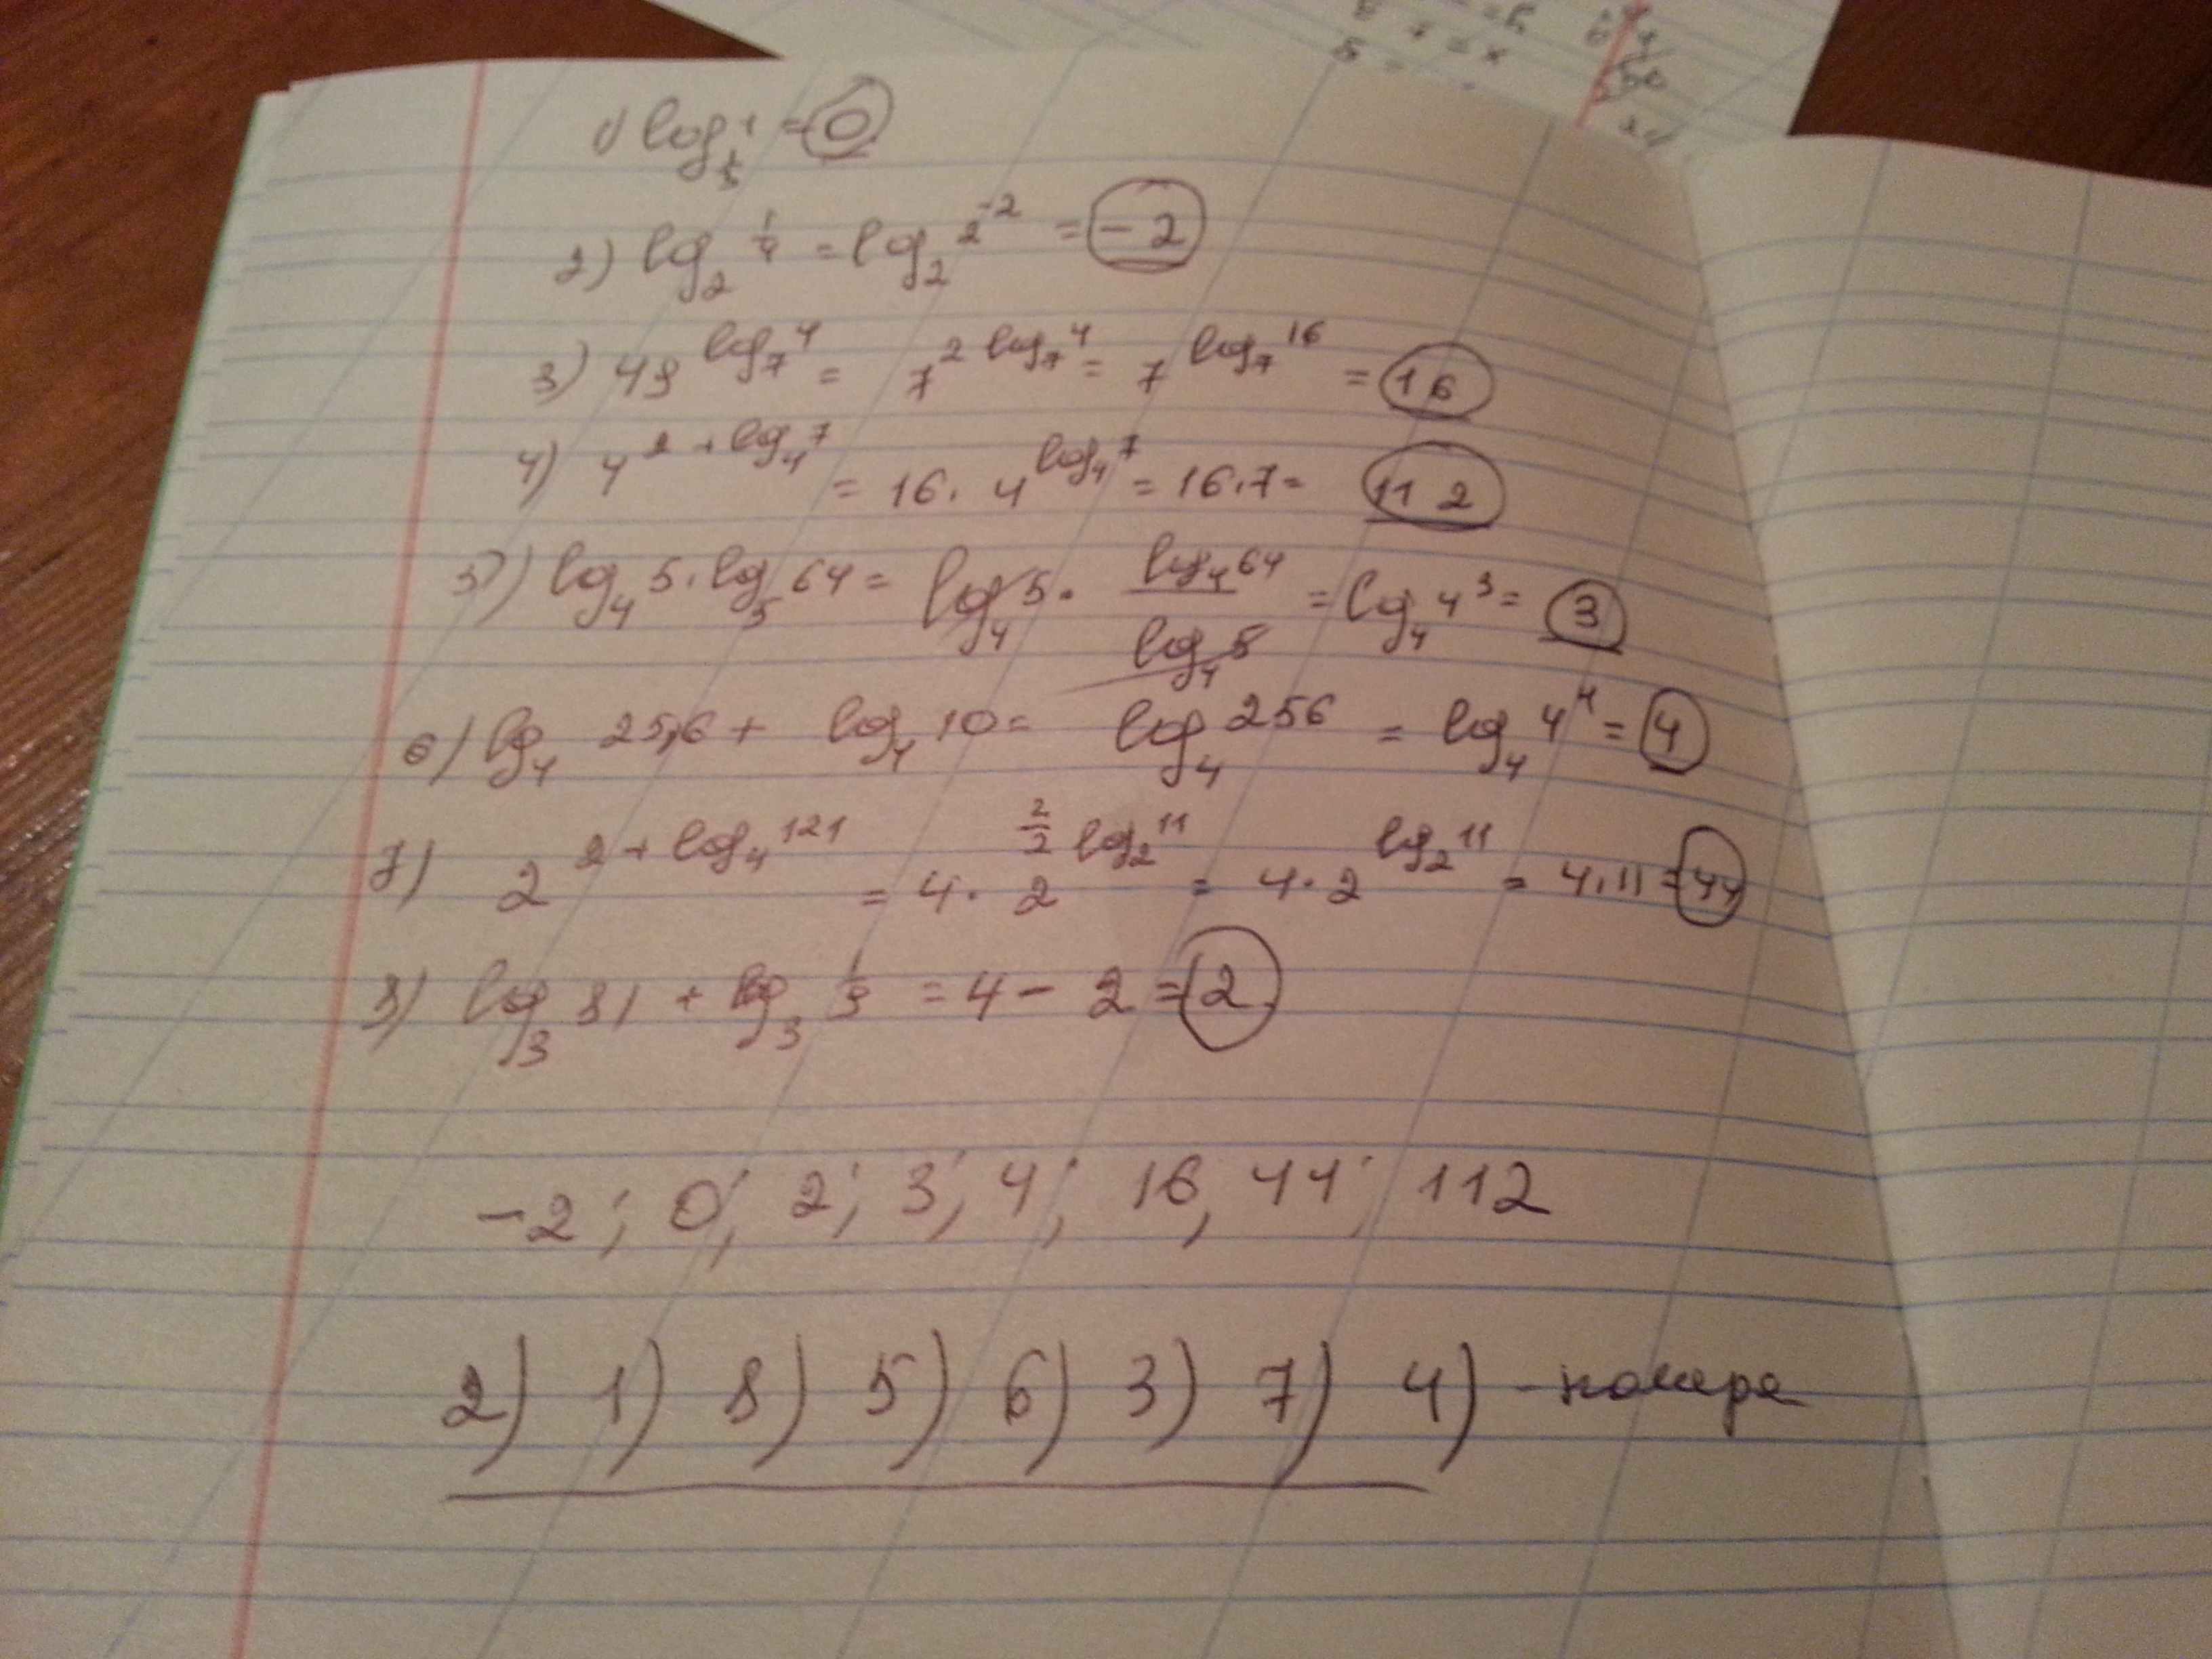 1) log_{1/3} 1 = 0
2) log_2 1/4 = log_2 2^{-2} = -2
3) 49^{log_7 4} = 7^{2 log_7 4} = 7^{log_7 16} = 16
4) 4^{2 + log_4 7} = 16 · 4^{log_4 7} = 16 · 7 = 112
5) log_4 5 · log_5 64 = log_4 5 · log_4 64 / log_4 5 = log_4 4^3 = 3
6) log_4 25,6 + log_4 10 = log_4 256 = log_4 4^4 = 4
7) 2^{2 + log_4 121} = 4 · 2^{2/2 log_2 11} = 4 · 2^{log_2 11} = 4 · 11 = 44
8) log_3 81 + log_3 1/9 = 4 - 2 = 2
-2; 0; 2; 3; 4; 16, 44; 112
2) 1) 8) 5) 6) 3) 7) 4) - номера